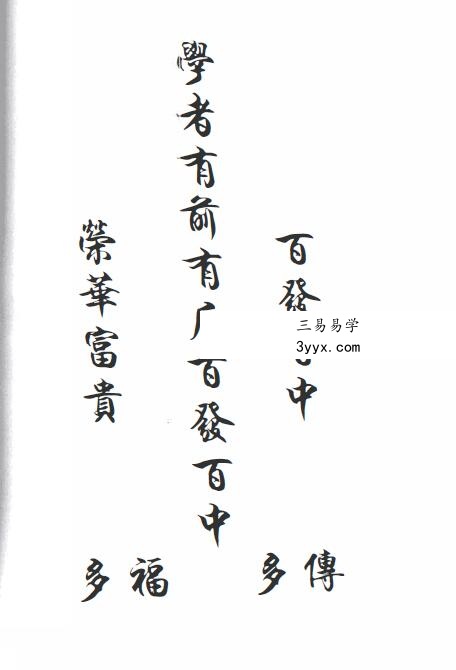 百發中
三易易学
3yyx.com
學者有前有厂百發百中
榮華富貴
多福
多傳